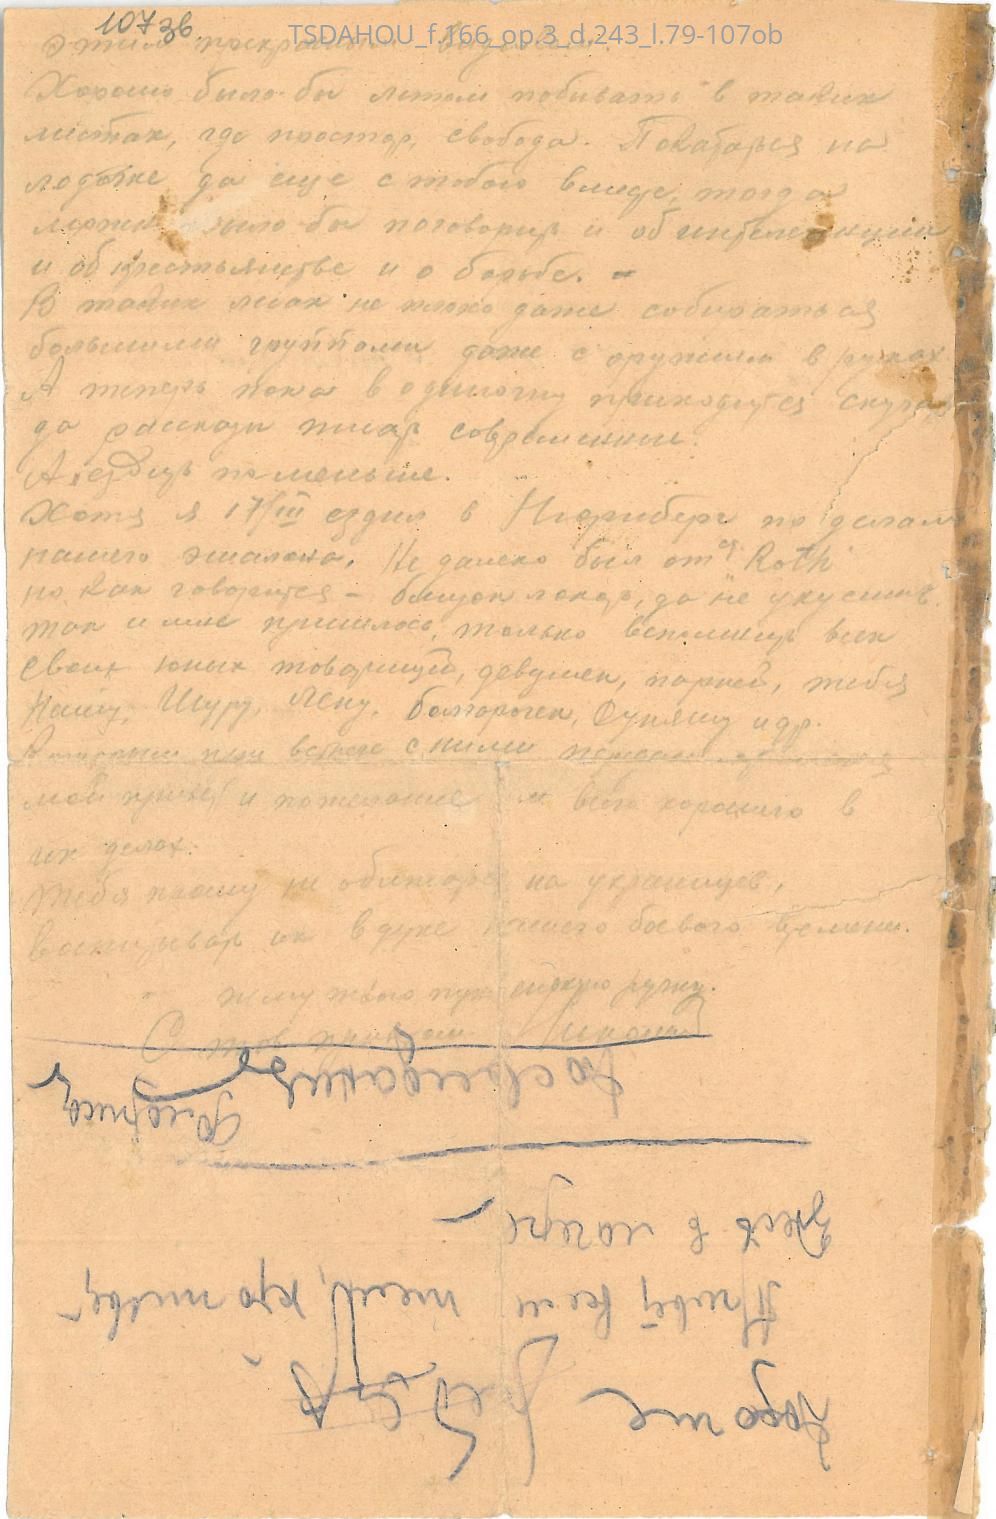 107 зв
TSDAHOU_f.166_op.3_d.243_l.79-107ob
этим прекрасным
Хорошо было-бы летом побывать в таких
местах, где простор, свобода. Покататься на
лодочке да еще с тобою вместе, тогда
можно было-бы поговорить и об интелегенции
и об крестьянстве и о борьбе. –
В таких лесах не плохо даже собираться
большими группами даже с оружием в руках.
А теперь пока в одиночку приходится скучать
да рассказы писать современные.
А ездить поменьше.
Хотя я 17/III ездил в Нюрнберг по делам
нашего эшалона. Не далеко был от Roth
но как говорится – близок локоть, да не укусишь.
так и мне пришлось, только вспомнить всех
своих юных товарищей, девушек, парней, тебя
Нашу, Шуру, Лену, болгарочек, Дуняшу и др.
при встрече с ними передай
мой привет и пожелание им всего хорошего в
их делах.
Тебя прошу не обижаться на украинцев,
воспитывать их в духе нашего боевого времени.
жму твою ручку.
С тов. приветом
Досвидания
Здесь в лагере
Привет всем тем, кто